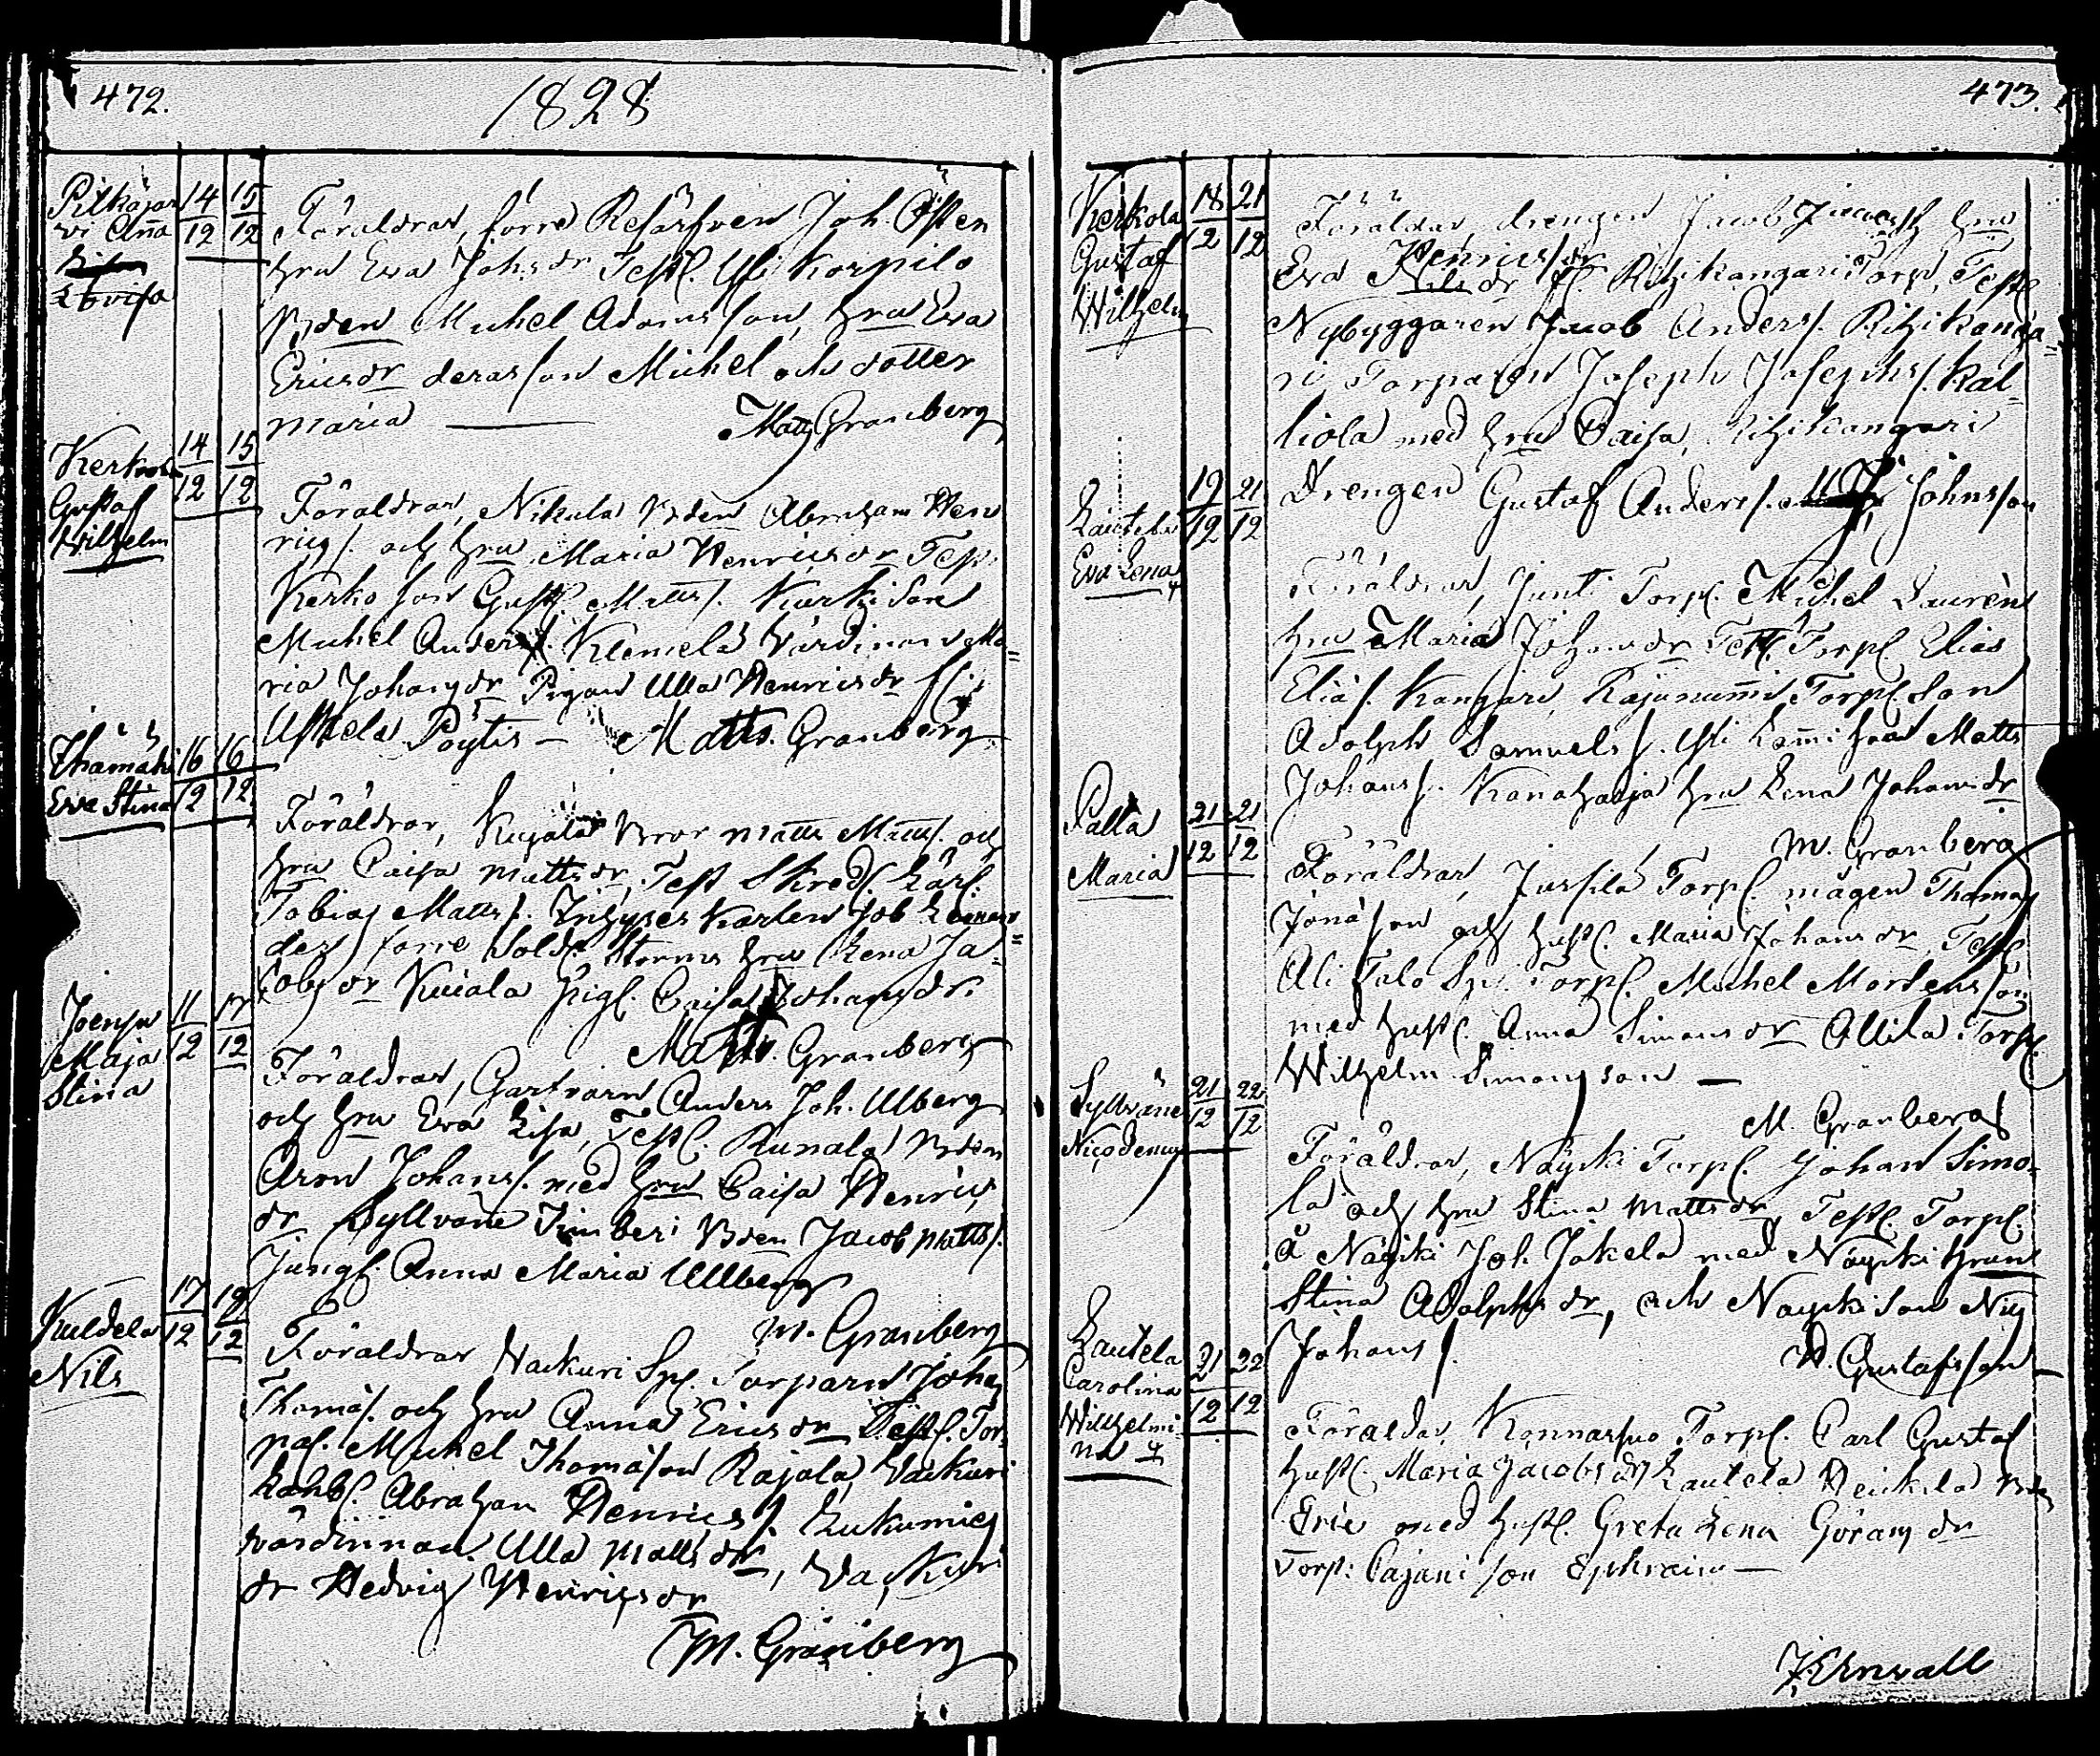 472.
1828
Pilkäjär
vi Aña
Lovisa
14/12 15/12
Föräldrar, förre Reserfven Joh. Östen
hru Eva Johsdr Test. Yli Korpilo
Bden Michel Adamsson, hru Eva
Ericsdr deras son Michel och dotter
Maria
Matts Granberg
Kerkola
Gustaf
Wilhelm
14/12 15/12
Föräldrar, Nikula Bden Abraham Hen
rics. och hru Maria Henricsdr Test.
Kerko son Gust. Matts. Kurki son
Michel Anders. Klemelä värdinnan Ma=
ria Johansdr Pigan Ulla Henricsdr
Uskela Pöytis — Matts. Granberg
Eva Stina
16/12 16/12
Föräldrar, Kujala Bror Matts Matts. och
hru Caisa Mattsdr, Test Skred. Lärl.
Tobias Matts. Inhyses Karlen Job
förre Sold. Storms hru Lena Ja=
cobsdr Kujala Pig. Caisa Johansdr.
Matts. Granberg
Joensu
Maja
Stina
11/12 17/12
Föräldrar, Garfvarn Anders Joh. Ulberg
och hru Eva Lisa, Test. Runala Bden
Aron Johans. med hru Caisa Henrics
dr Syllväne Timberi Bden Jacob Matts.
Jungf. Anna Maria Ullberg
M. Granberg
Kuldela
Nils
17/12 19/12
Föräldrar Vackuri Spl. Torparn Johan
Thomas. och hru Anna Ericsdr Test. Tor
Michel Thomasson Rajala, Vackuri
Abraham Henrics. Kukumies
värdinnan Ulla Mattsdr, Vackuri
dr Hedvig Henricsdr
M. Granberg
473.
Kerkola
Gustaf
Wilhelm
18/12 21/12
Föräldrar, drengen Jacob hru
Henricsdr
Eva Ritzikangari Torp, Test
Nybyggaren Jacob Anders. Ritzikanga=
ri, Torparen Joseph Josephs. Kal=
liola med hru Caisa, Ritzikangari
Drengen Gustaf Anders. Johnsson
Lautela
Eva Lena
19/12 21/12
Föräldrar, Junti Torp. Michel Laurens
hru Maria Johansdr Test. Torp. Elias
Elias. Kangari, Rajanummi Torp. son
Adolph Samuels. Matts
Johans. Kanahaaja hru Lena Johansdr
M. Granberg
Palla
Maria
21/12 21/12
Föräldrar, Jussila Torp. mågen Thomas
Jonasson och hust. Maria Johansdr, Test
Ali Talo Spl. Torp. Michel Mortensson
med hust. Anna Simonsdr Ollila Torp.
Wilhelm Simonsson —
M. Granberg
Syllväne
Nicodemus
21/12 22/12
Föräldrar, Näycki Torp. Johan Simo=
la och hru Stina Mattsdr, Test. Torp.
å Näycki Joh. Jakela med Näycki hruns
Stina Adolphsdr, och Naycki son Nils
Johans.
W. Gustafsson
Lautela
Carolina
Willhelmi=
na
21/12 22/12
Föräldrar, Konnarsuo Torp. Carl Gustaf
hust. Maria Jacobsdr, Lautela Heickilä
Eric med hust. Greta Lena Göransdr
Torp: Cajani son Ephraim —
J. Ernvall